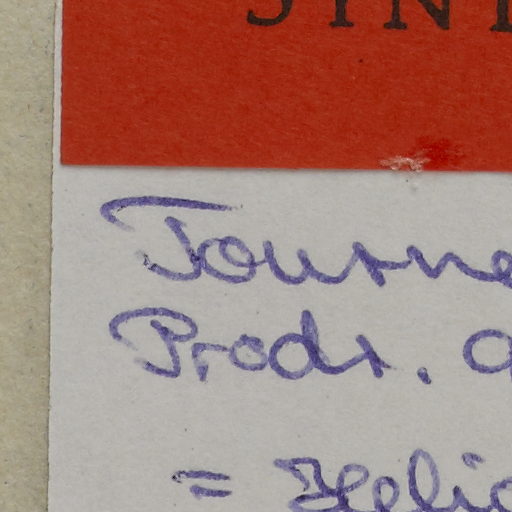 SYNT
Tourne
Prodr. 9
= Helio